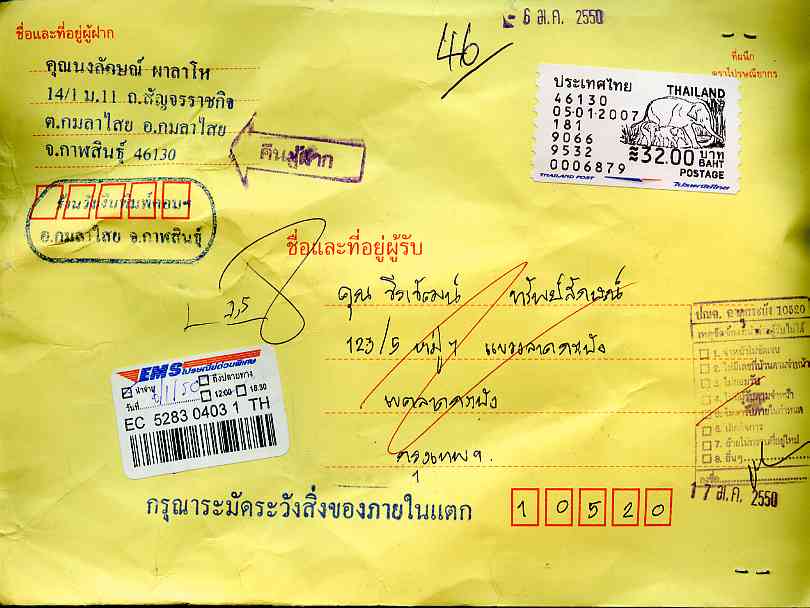 ชื่อและที่อยู่ผู้ฝาก
คุณนงลักษณ์ ผาลาโห
14/1 ม.11 ถ.สัญจรราชกิจ
ต.กมลาไสย อ.กมลาไสย
จ.กาฬสินธุ์ 46130
คืนผู้ฝาก
อ.กมลาไสย จ.กาฬสินธุ์
46
6 ม.ค. 2550
ที่ผนึก
ตราไปรษณียากร
ประเทศไทย THAILAND
46130
05-01-2007
181
9066
9532 ≈32.00 บาท BAHT
0006879 POSTAGE
THAILAND POST ไปรษณีย์ไทย
ชื่อและที่อยู่ผู้รับ
คุณ วีรวัฒน์ ทรัพย์ลักษณ์
123/5 หมู่ 7 แขวงลาดกระบัง
เขตลาดกระบัง
กรุงเทพฯ
10520
EMS ไปรษณีย์ด่วนพิเศษ
นำจ่าย ถึงปลายทาง
วันที่ 6/1/50 12:00 18.30
EC 5283 0403 1 TH
10520
1. จ่าหน้าไม่ชัดเจน
3. ไม่ยอมรับ
6. เลิกกิจการ
8. อื่นๆ
ลงชื่อ
17 ม.ค. 2550
กรุณาระมัดระวังสิ่งของภายในแตก